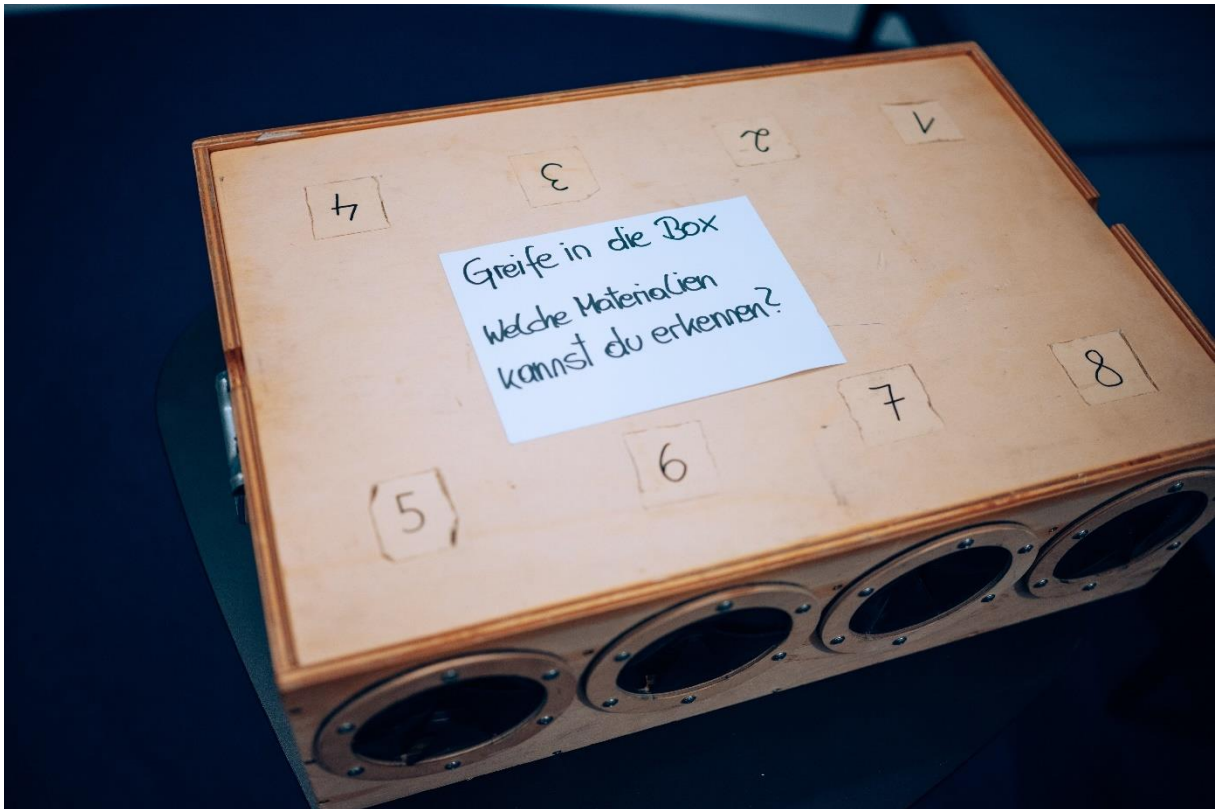 4 3 2 1
Greife in die Box
Welche Materialien
kannst du erkennen?
5 6 7 8